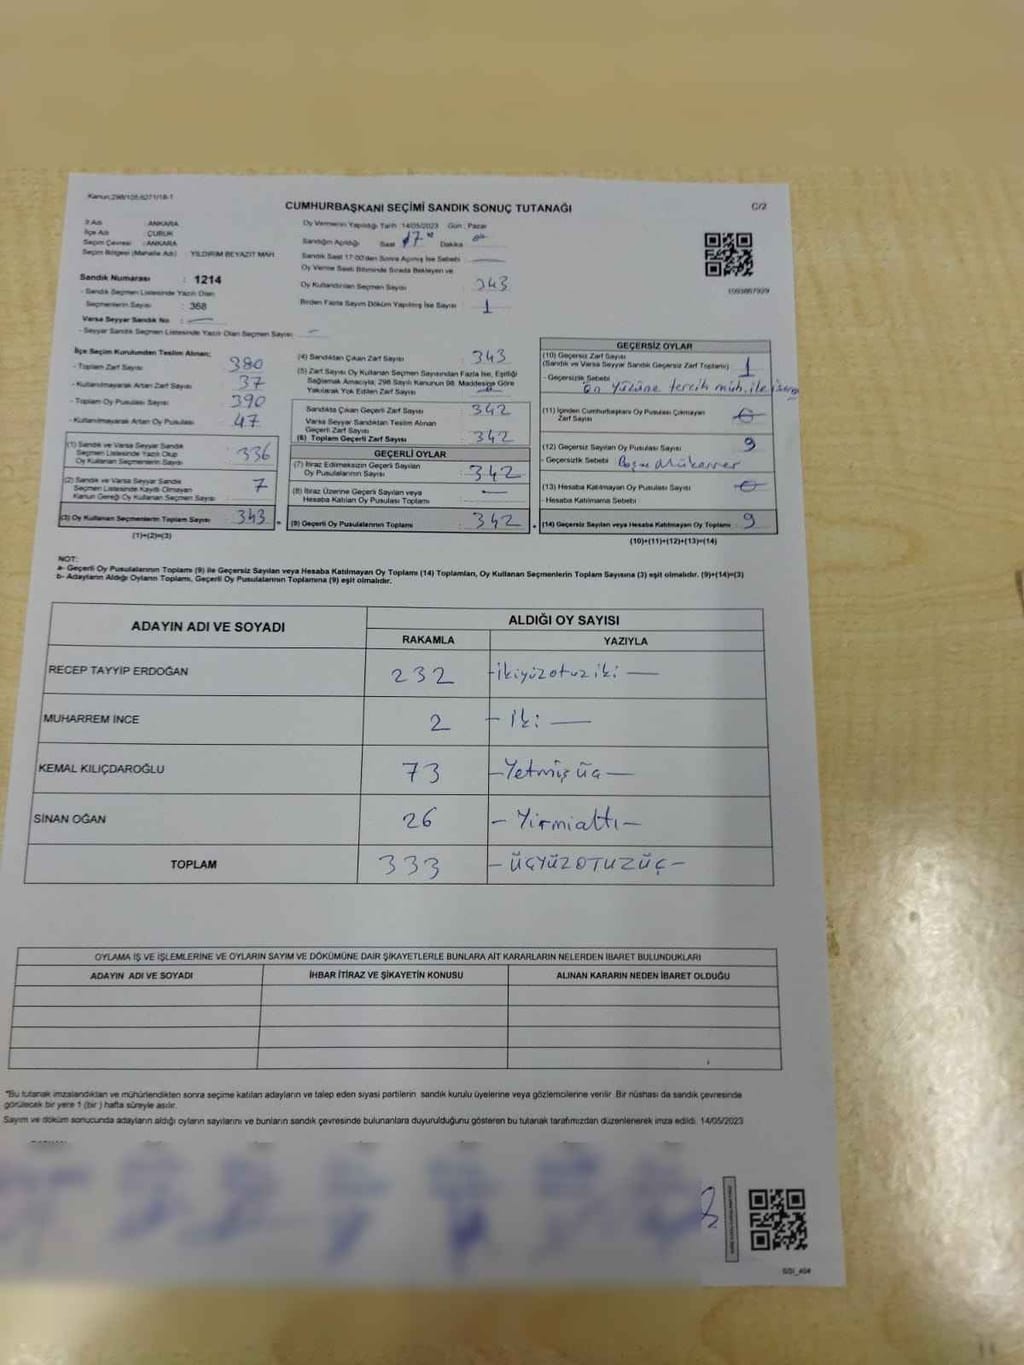 Kanun:298/105,6271/18-1
CUMHURBAŞKANI SEÇİMİ SANDIK SONUÇ TUTANAĞI
C/2
İl Adı : ANKARA
İlçe Adı : ÇUBUK
Seçim Çevresi : ANKARA
Seçim Bölgesi (Mahalle Adı) : YILDIRIM BEYAZIT MAH
Sandık Numarası : 1214
- Sandık Seçmen Listesinde Yazılı Olan
Seçmenlerin Sayısı : 368
Varsa Seyyar Sandık No : —
- Seyyar Sandık Seçmen Listesinde Yazılı Olan Seçmen Sayısı : —
Oy Vermenin Yapıldığı Tarih :14/05/2023 Gün : Pazar
Sandığın Açıldığı Saat : 17 Dakika :
Sandık Saat 17:00'den Sonra Açılmış İse Sebebi : —
Oy Verme Saati Bitiminde Sırada Bekleyen ve
Oy Kullandırılan Seçmen Sayısı : 343
Birden Fazla Sayım Döküm Yapılmış İse Sayısı : 1
İlçe Seçim Kurulundan Teslim Alınan;
- Toplam Zarf Sayısı : 380
- Kullanılmayarak Artan Zarf Sayısı : 37
- Toplam Oy Pusulası Sayısı : 390
- Kullanılmayarak Artan Oy Pusulası : 47
(1) Sandık ve Varsa Seyyar Sandık
Seçmen Listesinde Yazılı Olup
Oy Kullanan Seçmenlerin Sayısı : 336
(2) Sandık ve Varsa Seyyar Sandık
Seçmen Listesinde Kayıtlı Olmayan
Kanun Gereği Oy Kullanan Seçmen Sayısı : 7
(3) Oy Kullanan Seçmenlerin Toplam Sayısı : 343
(1)+(2)=(3)
(4) Sandıktan Çıkan Zarf Sayısı : 343
(5) Zarf Sayısı Oy Kullanan Seçmen Sayısından Fazla İse, Eşitliği
Sağlamak Amacıyla; 298 Sayılı Kanunun 98. Maddesine Göre
Yakılarak Yok Edilen Zarf Sayısı :
Sandıkta Çıkan Geçerli Zarf Sayısı : 342
Varsa Seyyar Sandıktan Teslim Alınan
Geçerli Zarf Sayısı :
(6) Toplam Geçerli Zarf Sayısı : 342
GEÇERLİ OYLAR
(7) İtiraz Edilmeksizin Geçerli Sayılan
Oy Pusulalarının Sayısı : 342
(8) İtiraz Üzerine Geçerli Sayılan veya
Hesaba Katılan Oy Pusulası Toplamı : —
(9) Geçerli Oy Pusulalarının Toplamı : 342
GEÇERSİZ OYLAR
(10) Geçersiz Zarf Sayısı
(Sandık ve Varsa Seyyar Sandık Geçersiz Zarf Toplamı) : 1
- Geçersizlik Sebebi : Ön Yüzüne tercih müh. ile
(11) İçinden Cumhurbaşkanı Oy Pusulası Çıkmayan
Zarf Sayısı : 0
(12) Geçersiz Sayılan Oy Pusulası Sayısı : 9
- Geçersizlik Sebebi : Boş ve Mükerrer
(13) Hesaba Katılmayan Oy Pusulası Sayısı : 0
- Hesaba Katılmama Sebebi :
(14) Geçersiz Sayılan veya Hesaba Katılmayan Oy Toplamı : 9
(10)+(11)+(12)+(13)=(14)
NOT:
a- Geçerli Oy Pusulalarının Toplamı (9) ile Geçersiz Sayılan veya Hesaba Katılmayan Oy Toplamı (14) Toplamları, Oy Kullanan Seçmenlerin Toplam Sayısına (3) eşit olmalıdır. (9)+(14)=(3)
b- Adayların Aldığı Oyların Toplamı, Geçerli Oy Pusulalarının Toplamına (9) eşit olmalıdır.
ADAYIN ADI VE SOYADI
ALDIĞI OY SAYISI
RAKAMLA YAZIYLA
RECEP TAYYİP ERDOĞAN 232 -ikiyüzotuziki-
MUHARREM İNCE 2 -iki-
KEMAL KILIÇDAROĞLU 73 -Yetmişüç-
SİNAN OĞAN 26 -Yirmialtı-
TOPLAM 333 -ÜÇYÜZOTUZÜÇ-
OYLAMA İŞ VE İŞLEMLERİNE VE OYLARIN SAYIM VE DÖKÜMÜNE DAİR ŞİKAYETLERLE BUNLARA AİT KARARLARIN NELERDEN İBARET BULUNDUKLARI
ADAYIN ADI VE SOYADI İHBAR İTİRAZ VE ŞİKAYETİN KONUSU ALINAN KARARIN NEDEN İBARET OLDUĞU
"Bu tutanak imzalandıktan ve mühürlendikten sonra seçime katılan adayların ve talep eden siyasi partilerin sandık kurulu üyelerine veya gözlemcilerine verilir. Bir nüshası da sandık çevresinde
görülecek bir yere 1 (bir ) hafta süreyle asılır.
Sayım ve döküm sonucunda adayların aldığı oyların sayılarını ve bunların sandık çevresinde bulunanlara duyurulduğunu gösteren bu tutanak tarafımızdan düzenlenerek imza edildi. 14/05/2023